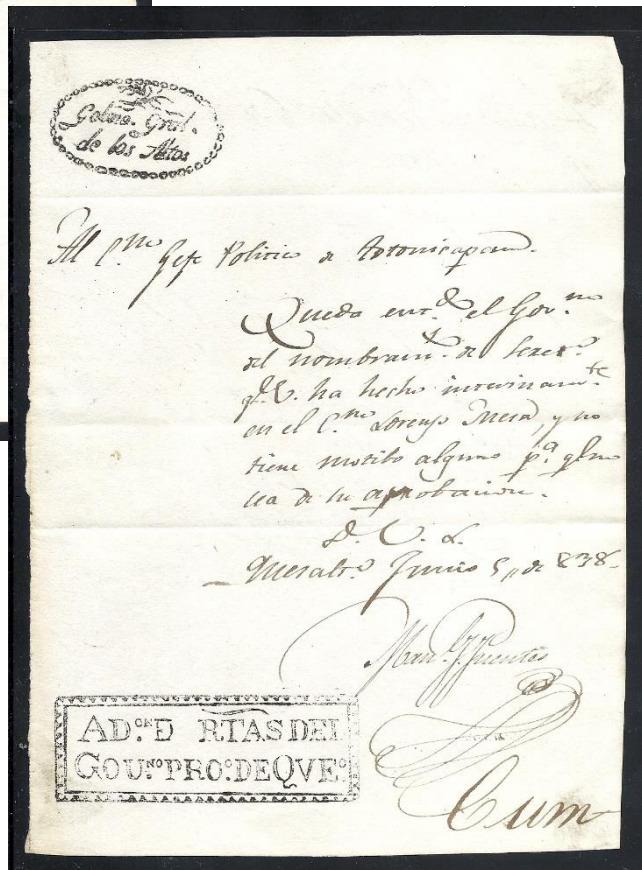 Gobno. Gral.
de los Altos
Al C.no Gefe Politico de Totonicapam.
Queda ent.do el Gov.no
del nombram.to de Secret.o
q.e V. ha hecho interinam.te
en el C.no Lorenzo Mesa, y no
tiene motibo alguno p.a q.e no
sea de su aprobacion.
D. U. L.
Quesalt.o Junio 5,, de 838-
Man.l J. Fuentes
AD.ON D RTAS DEL
GOU.NO PRO.O DE QVE.O